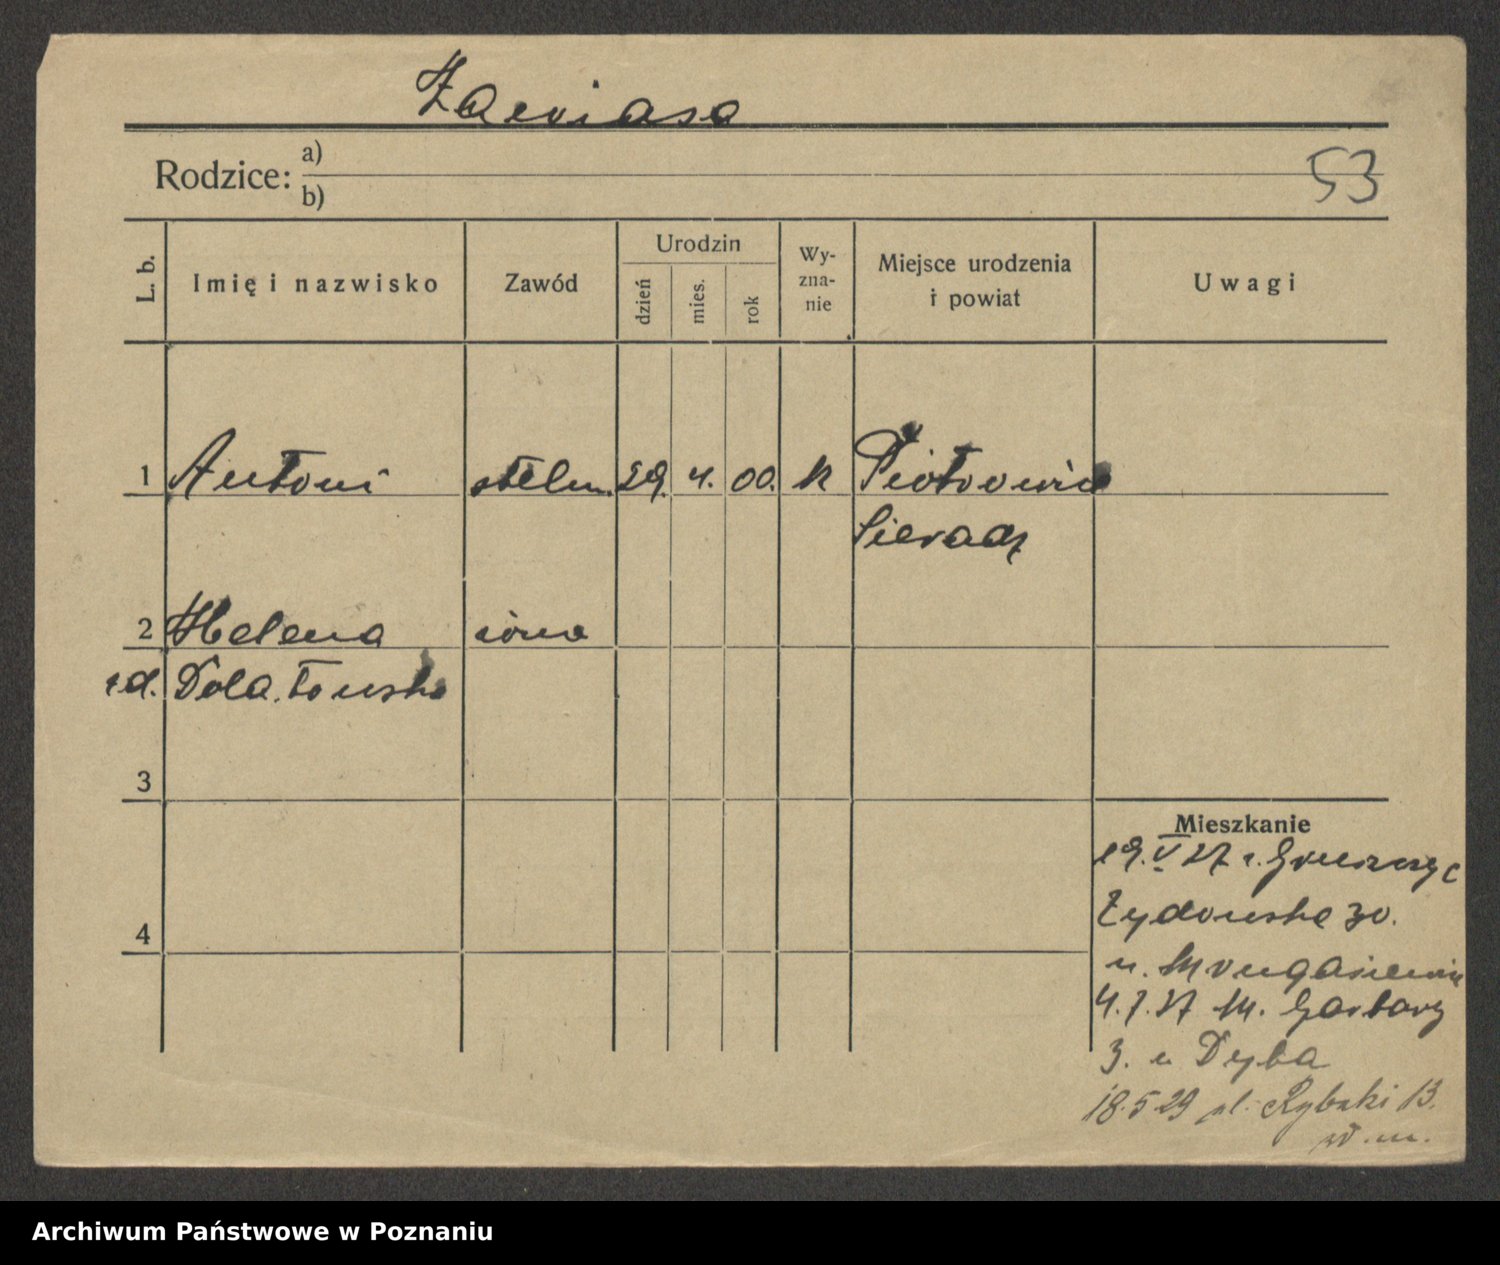 Zawiasa
Rodzice: a)
b)
53
L. b.
Imię i nazwisko
Zawód
Urodzin
dzień
mies.
rok
Wy-
zna-
nie
Miejsce urodzenia
i powiat
Uwagi
1 Antoni stelm. 29. 4. 00. k Piotrowice
Sieradz
2 Helena żona
zd. Dolatowska
3
4
Mieszkanie
19.V 27 z.
Żydowska 30.
u.
4.7.27 M. Garbary
3. u Dyba
18.5 29 pl. Rybaki 13.
w.m.
Archiwum Państwowe w Poznaniu